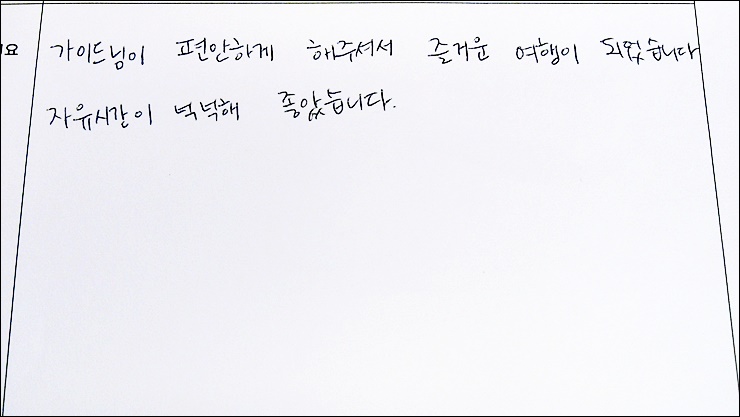 요
가이드님이 편안하게 해주셔서 즐거운 여행이 되었습니다
자유시간이 넉넉해 좋았습니다.